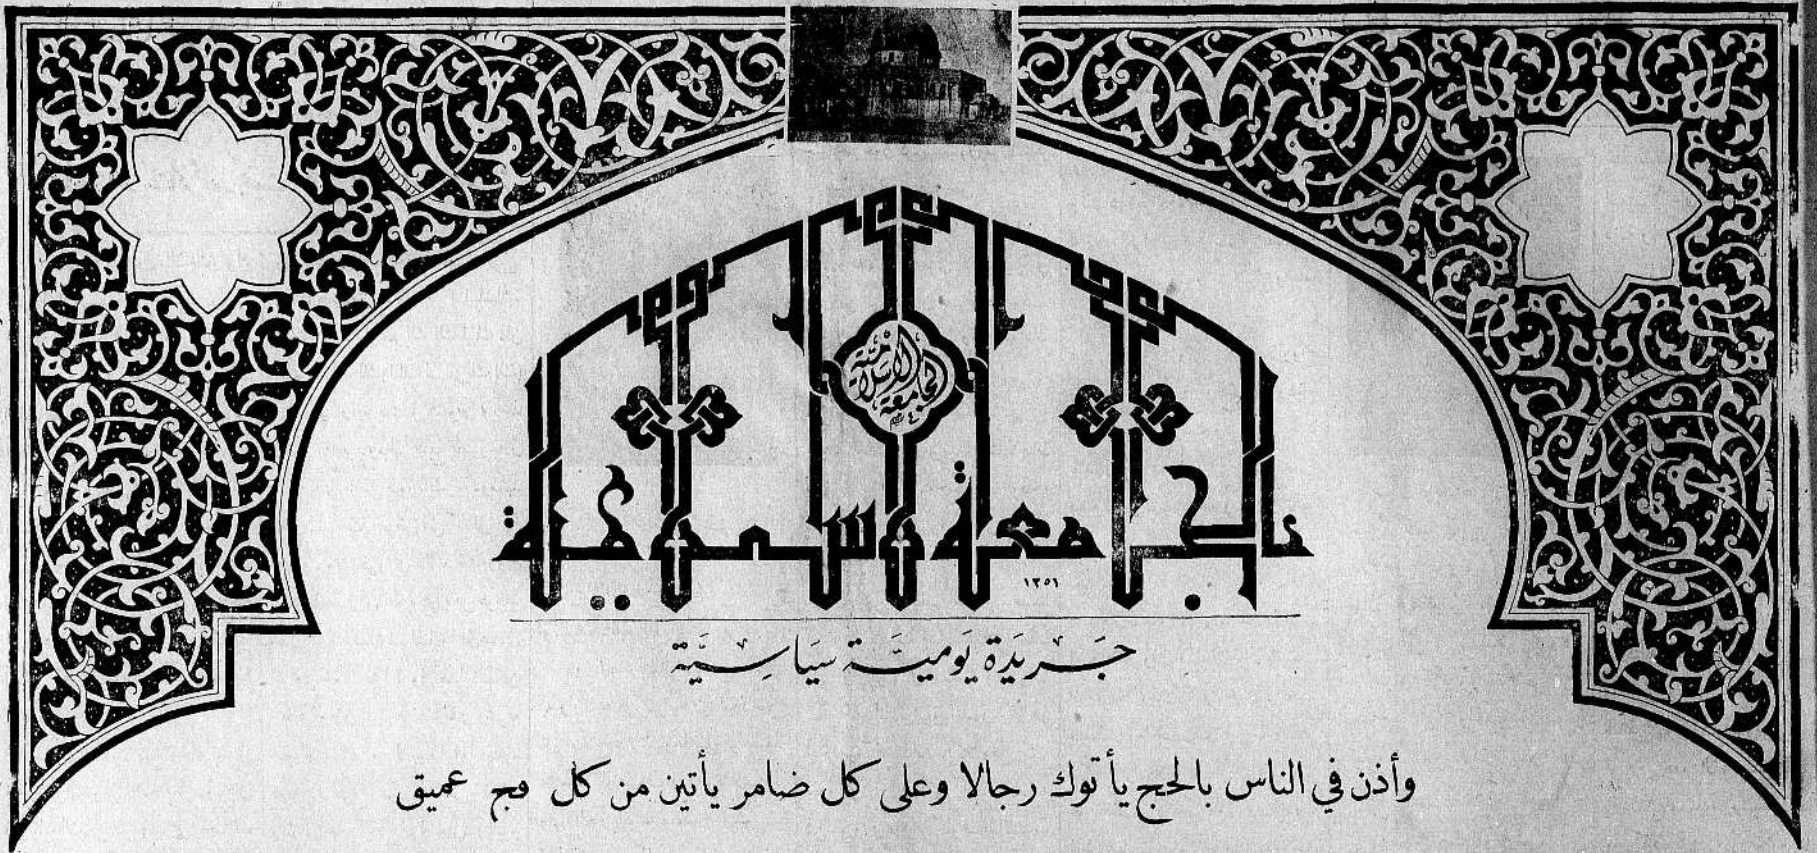 الجامعة الإسلامية
الجامعة الاسلامية
١٣٥١
جَريدَة يَوميَّة سيَاسِيَّة
وأذن في الناس بالحج يأتوك رجالا وعلى كل ضامر يأتين من كل فج عميق